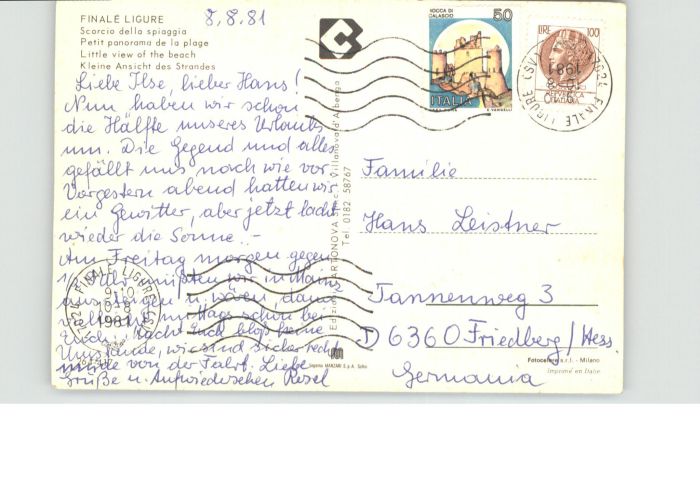 FINALE LIGURE 8.8.81
Scorcio della spiaggia
Petit panorama de la plage
Little view of the beach
Kleine Ansicht des Strandes
Liebe Ilse, lieber Hans!
Nun haben wir schon
die Hälfte unseres Urlaubs
um. Die Gegend und alles
gefällt uns nach wie vor.
Vorgestern abend hatten wir
ein Gewitter, aber jetzt lacht
wieder die Sonne. -
Am Freitag morgen gegen
Uhr müßten wir in Mainz
aussteigen u. wären dann
schon bei
Euch. Macht Euch bloß keine
Umstände, wir sind sicher recht
müde von der Fahrt. Liebe
Grüße u. Aufwiedersehen Resel
ROCCA DI CALASCIO 50
ITALIA
LIRE 100
REPUBBLICA ITALIANA
FINALE LIGURE (SV)
1981
Villanova d'Albenga
Tel. 0182 58767
Familie
Hans Leistner
Tannenweg 3
D 6360 Friedberg/Hess.
Germania
Fotocelere s.r.l. - Milano
Imprimé en Italie
FINALE LIGURE (SV)
1981